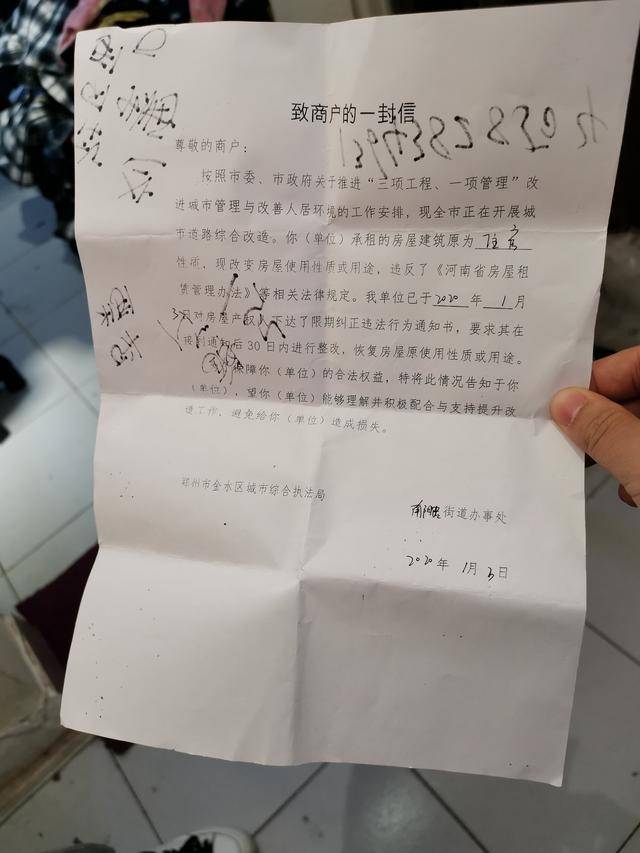 致商户的一封信
尊敬的商户：
按照市委、市政府关于推进“三项工程、一项管理”改
进城市管理与改善人居环境的工作安排，现全市正在开展城
市道路综合改造。你（单位）承租的房屋建筑原为 住宅
性质，现改变房屋使用性质或用途，违反了《河南省房屋租
赁管理办法》等相关法律规定。我单位已于 2020 年 1 月
3日对房屋产权人下达了限期纠正违法行为通知书，要求其在
接到通知后30日内进行整改，恢复房屋原使用性质或用途。
障你（单位）的合法权益，特将此情况告知于你
（单位），望你（单位）能够理解并积极配合与支持提升改
造工作，避免给你（单位）造成损失。
郑州市金水区城市综合执法局
街道办事处
2020年 1月 3日